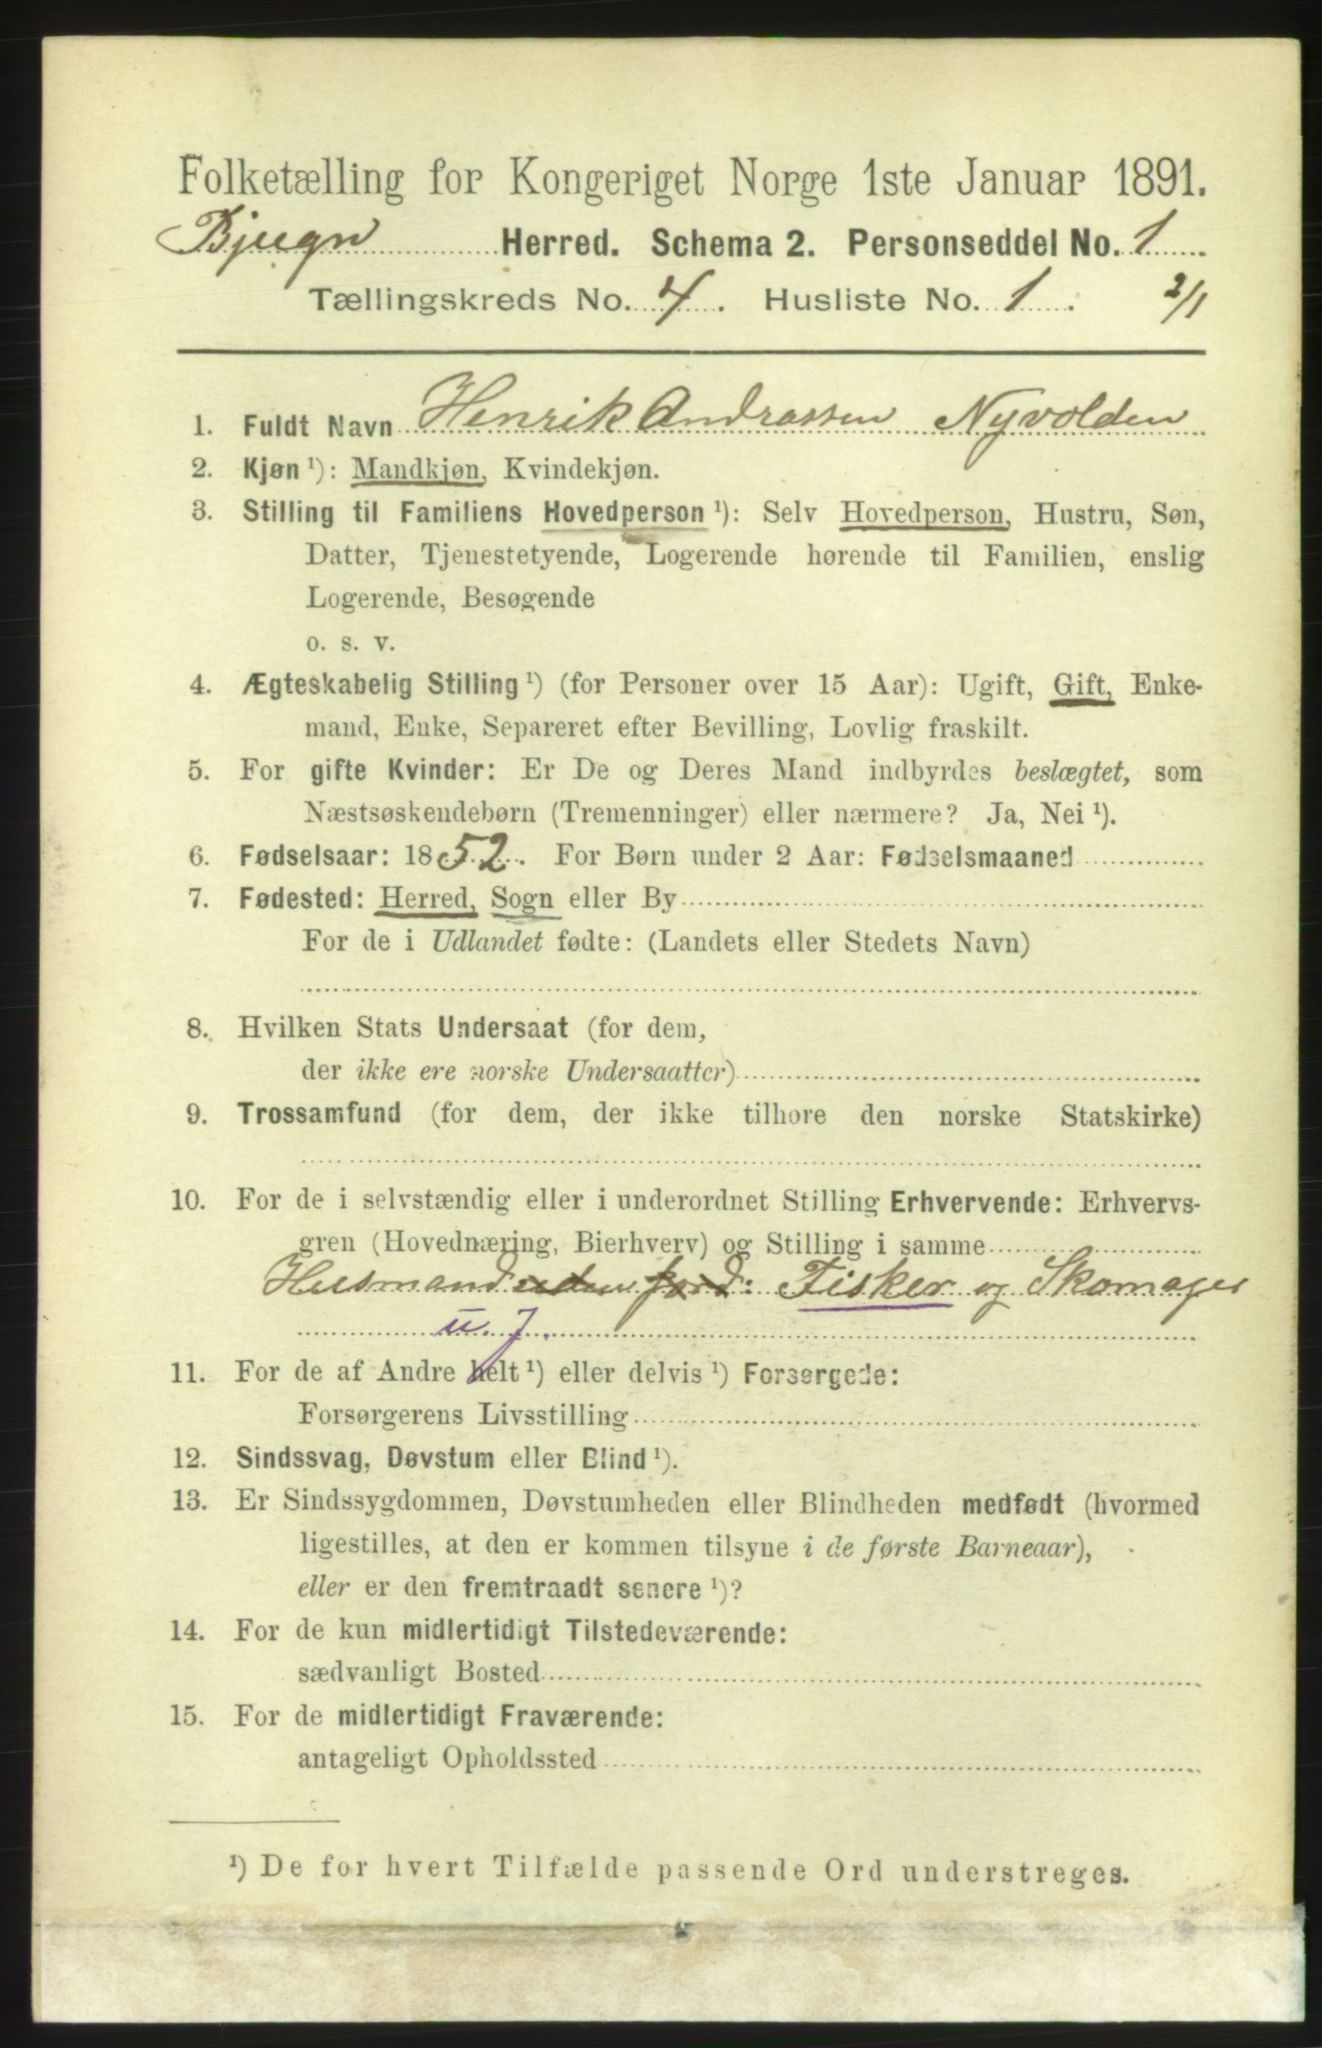 Folketælling for Kongeriget Norge 1ste Januar 1891.
Bjugn Herred. Schema 2. Personseddel No. 1
Tællingskreds No. 4. Husliste No. 1. 2/1
1. Fuldt Navn Henrik Andrassen Nyvolden
2. Kjøn ¹): Mandkjøn, Kvindekjøn.
3. Stilling til Familiens Hovedperson ¹): Selv Hovedperson, Hustru, Søn,
Datter, Tjenestetyende, Logerende hørende til Familien, enslig
Logerende, Besøgende
o. s. v.
4. Ægteskabelig Stilling ¹) (for Personer over 15 Aar): Ugift, Gift, Enke-
mand, Enke, Separeret efter Bevilling, Lovlig fraskilt.
5. For gifte Kvinder: Er De og Deres Mand indbyrdes beslægtet, som
Næstsøskendebørn (Tremenninger) eller nærmere? Ja, Nei ¹).
6. Fødselsaar: 1852. For Børn under 2 Aar: Fødselsmaaned
7. Fødested: Herred, Sogn eller By
For de i Udlandet fødte: (Landets eller Stedets Navn)
8. Hvilken Stats Undersaat (for dem,
der ikke ere norske Undersaatter)
9. Trossamfund (for dem, der ikke tilhore den norske Statskirke)
10. For de i selvstændig eller i underordnet Stilling Erhvervende: Erhvervs-
gren (Hovednæring, Bierhverv) og Stilling i samme
Husmand uden jord: Fisker og Skomager
u. J.
11. For de af Andre helt ¹) eller delvis ¹) Forsørgede:
Forsørgerens Livsstilling
12. Sindssvag, Døvstum eller Blind ¹).
13. Er Sindssygdommen, Døvstumheden eller Blindheden medfødt (hvormed
ligestilles, at den er kommen tilsyne i de første Barneaar),
eller er den fremtraadt senere ¹)?
14. For de kun midlertidigt Tilstedeværende:
sædvanligt Bosted
15. For de midlertidigt Fraværende:
antageligt Opholdssted
¹) De for hvert Tilfælde passende Ord understreges.